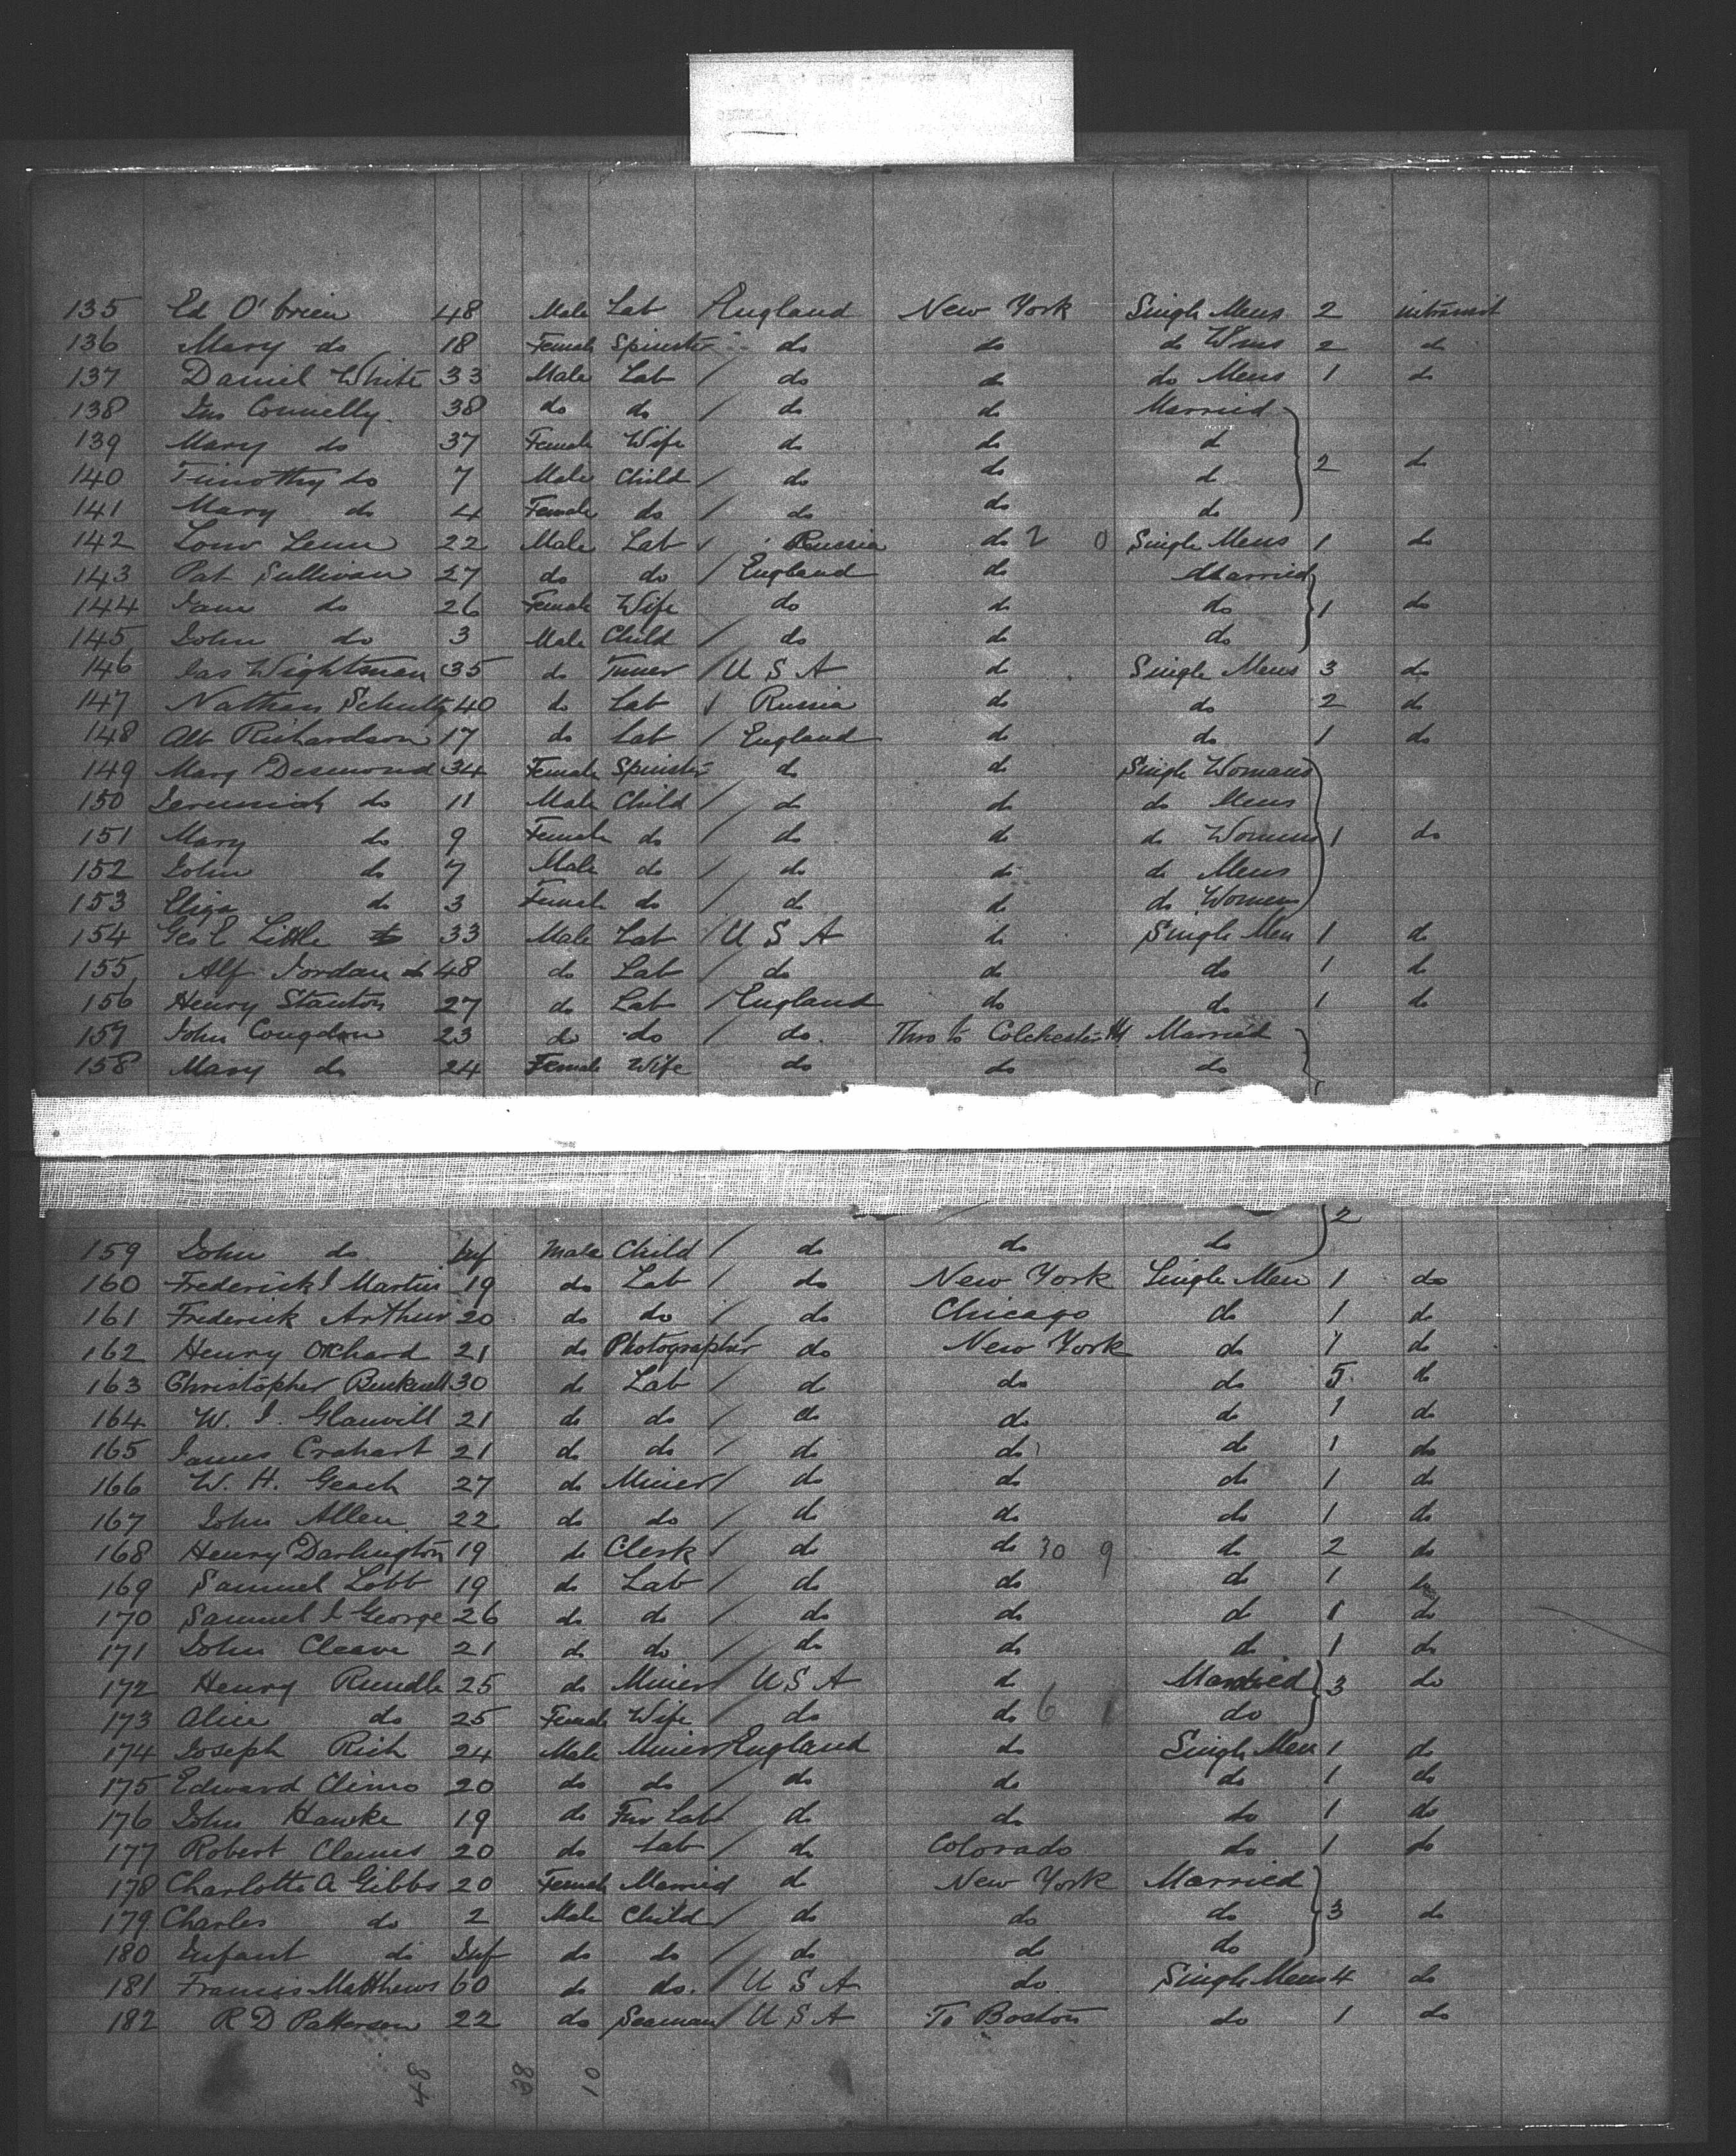 135 Ed O'brien 48 Male Lab England New York Single Mens 2 intransit
136 Mary do 18 Female Spinster do do do Wms 2 do
137 Daniel White 33 Male Lab / do do do Mens 1 do
138 Jas Connelly 38 do do / do do Married
139 Mary do 37 Female Wife do do d
140 Timothy do 7 Male Child / do do do 2 do
141 Mary do 4 Female do / do do do
142 Lenn 22 Male Lab Russia do 2 0 Single Mens 1 do
143 Pat Sullivan 27 do do / England do Married
144 Jane do 26 Female Wife do do do 1 do
145 John do 3 Male Child / do do do
146 Jas Wightman 35 do / U S A do Single Mens 3 do
147 Nathan Schultz 40 do Lab Russia do do 2 do
148 Alb Richardson 17 do Lab / England do do 1 do
149 Mary Desmond 34 Female Spinster do do Single Womans
150 Jeremiah do 11 Male Child / do do do Mens
151 Mary do 9 Female do / do do do Womens 1 do
152 John do 7 Male do / do do do Mens
153 Eliza do 3 Female do / do do do Womens
154 Geo E Little 33 Male Lab / U S A do Single Men 1 do
155 Alf Jordan 48 do Lab / do do do 1 do
156 Henry Stanton 27 do Lab / England do do 1 do
157 John Congdon 23 do do / do Thro to Colchester Married
158 Mary do 24 Female Wife do do do
2
159 John do Inf Male Child / do do do
160 Frederick J Martin 19 do Lab / do New York Single Men 1 do
161 Frederick Arthur 20 do do / do Chicago do 1 do
162 Henry Orchard 21 do Photographer do New York do 1 do
163 Christopher Bucknell 30 do Lab / do do do 5 do
164 W. J. Glanvill 21 do do / do do do 1 do
165 James Crahart 21 do do / do do do 1 do
166 W. H. Geach 27 do Miner / do do do 1 do
167 John Allen 22 do do / do do do 1 do
168 Henry Darlington 19 do Clerk / do do 30 9 do 2 do
169 Samuel Lobb 19 do Lab / do do do 1 do
170 Samuel J George 26 do do / do do do 1 do
171 John Cleave 21 do do / do do do 1 do
172 Henry Rundle 25 do Miner / U S A do Married 3 do
173 Alice do 25 Female Wife / do do 6 1 do
174 Joseph Rich 24 Male Miner / England do Single Men 1 do
175 Edward Climo 20 do do / do do do 1 do
176 John Hawke 19 do Fm Lab / do do do 1 do
177 Robert Clemes 20 do Lab / do Colorado do 1 do
178 Charlotte A Gibbs 20 Female Married do New York Married
179 Charles do 2 Male Child / do do do 3 do
180 Infant do Inf do do / do do do
181 Francis Matthews 60 do do. / U S A do Single Mens 4 do
182 R D Patterson 22 do Seaman / U S A To Boston do 1 do
48 38 10